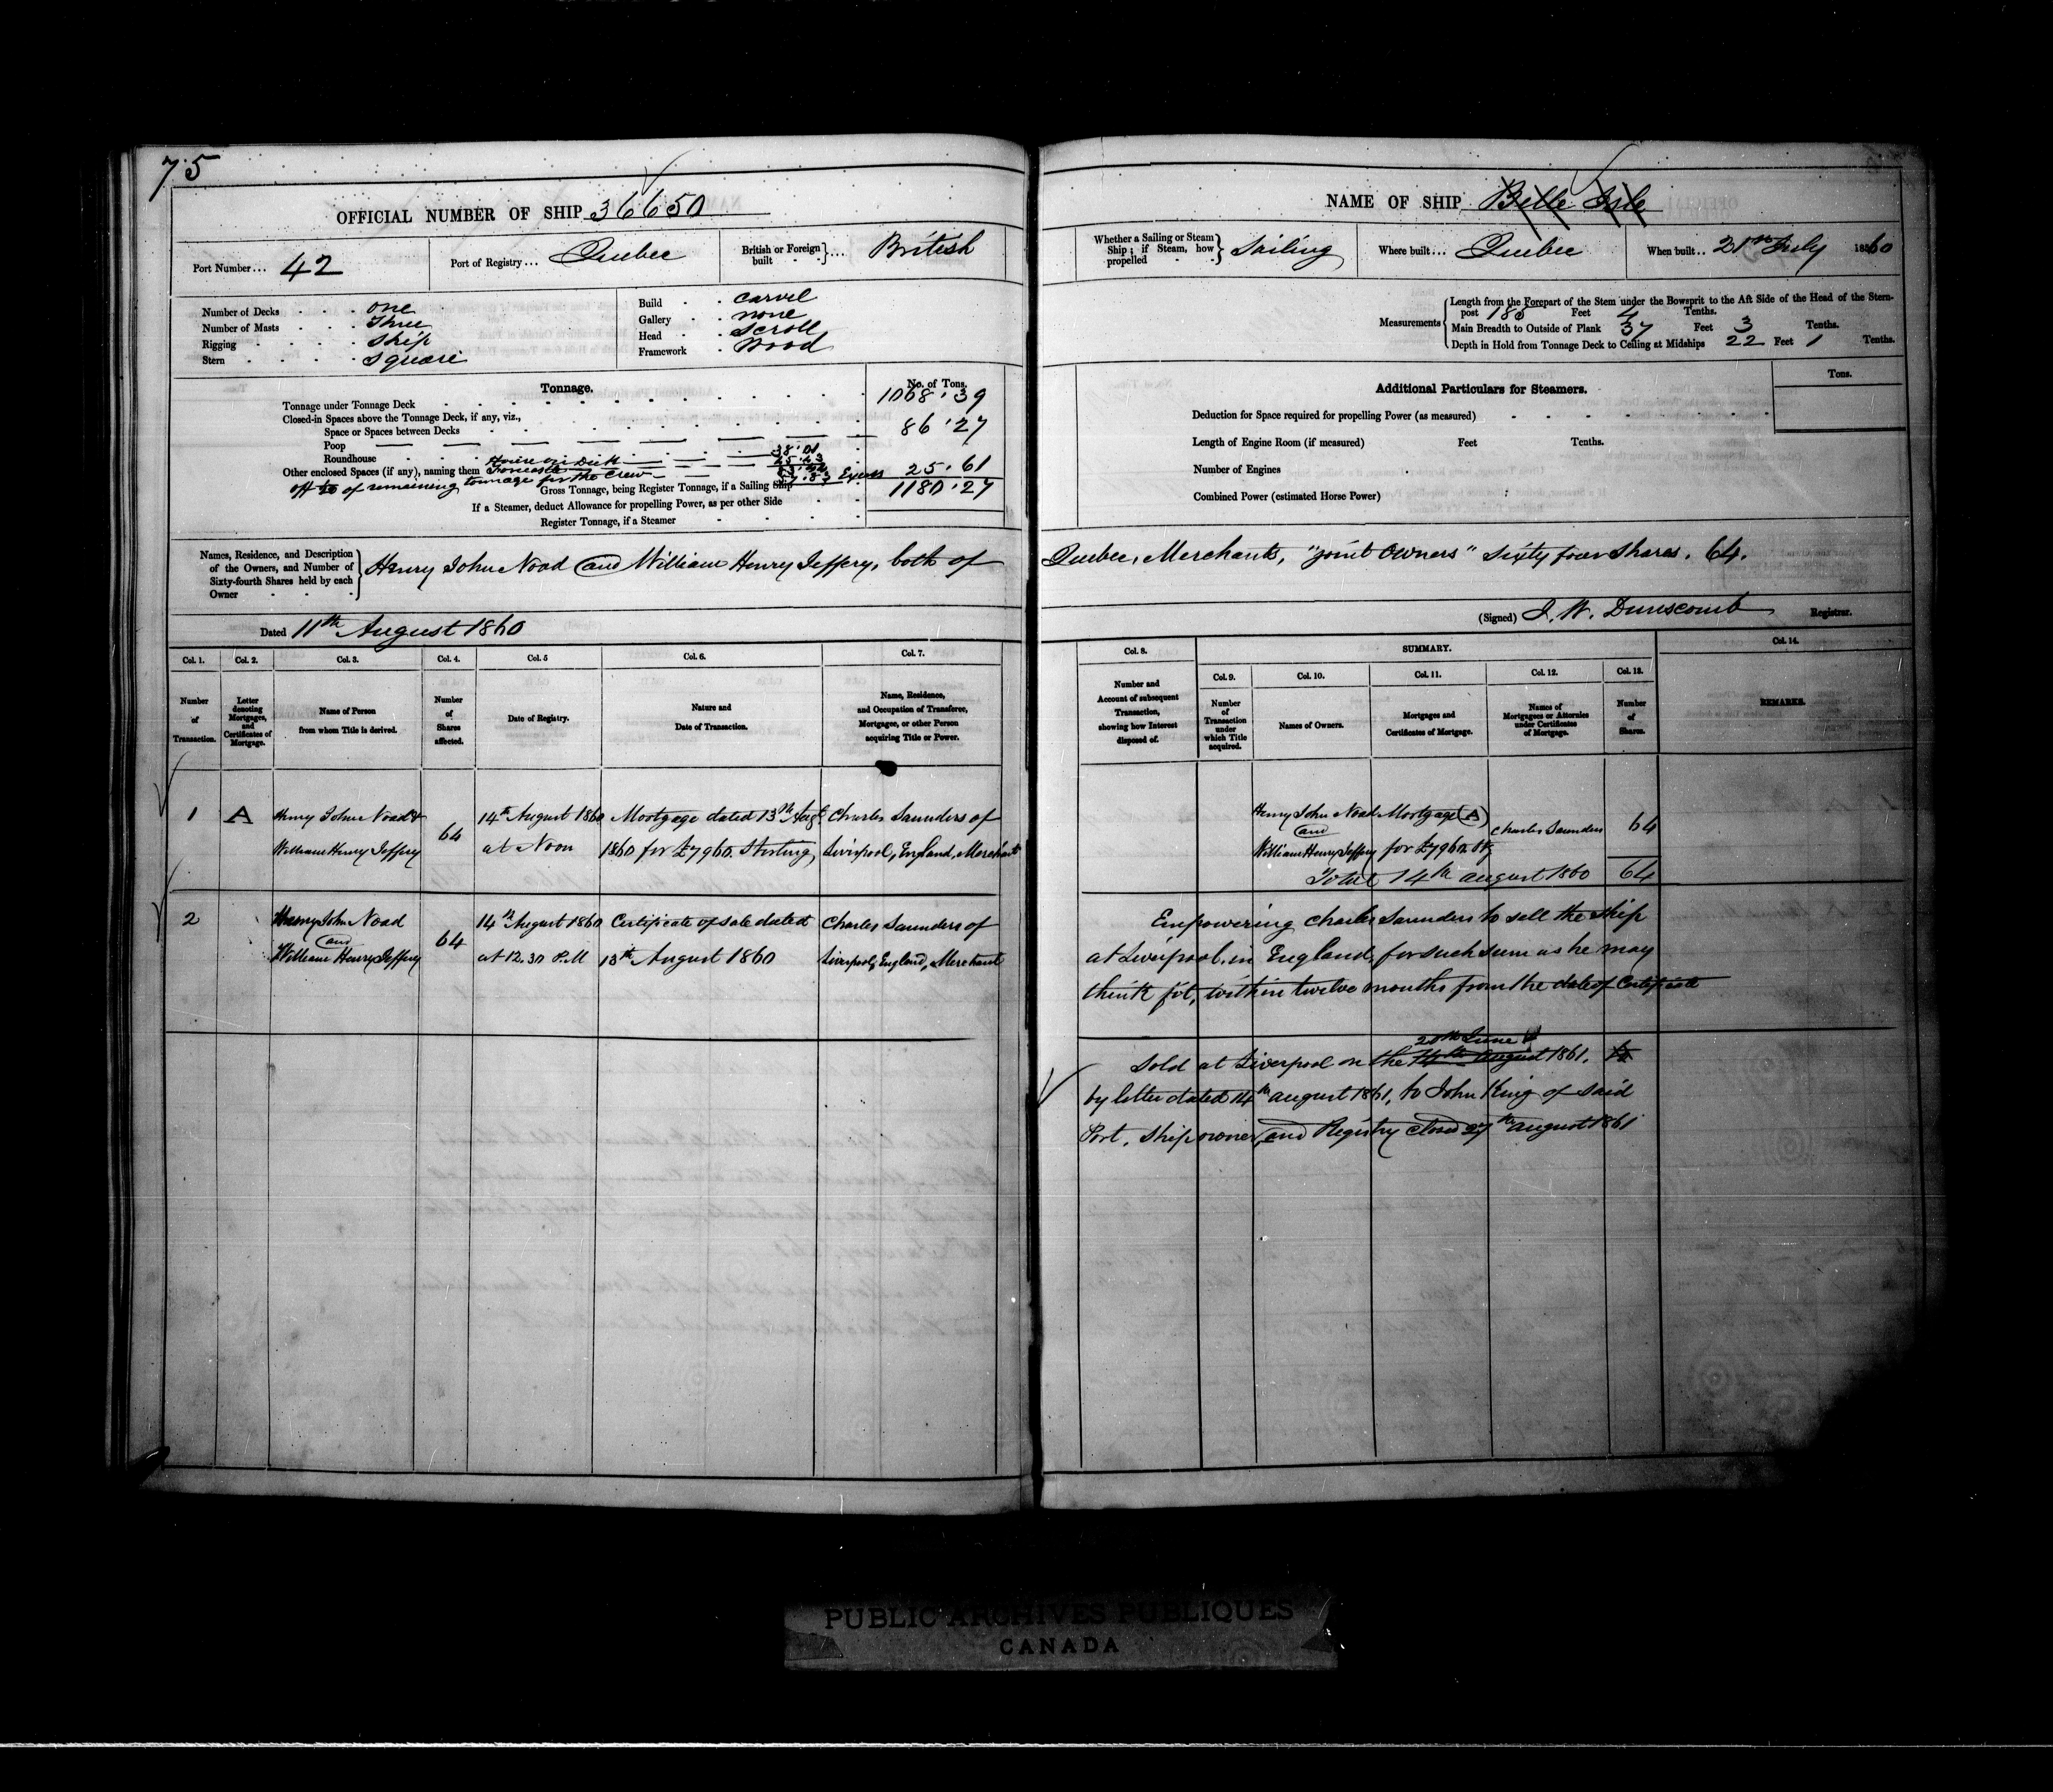 75
OFFICIAL NUMBER OF SHIP 36650
Port Number... 42
Port of Registry... Quebec
British or Foreign built } ... British
Number of Decks one
Number of Masts Three
Rigging Ship
Stern Square
Build Carvel
Gallery none
Head Scroll
Framework Wood
Tonnage. No. of Tons.
Tonnage under Tonnage Deck 1068.39
Closed-in Spaces above the Tonnage Deck, if any, viz.,
Space or Spaces between Decks 86.27
Poop
Roundhouse House on Deck 38.01
Other enclosed Spaces (if any), naming them Forecastle
off of remaining tonnage for the Crew Excess 25.61
Gross Tonnage, being Register Tonnage, if a Sailing Ship 1180.27
If a Steamer, deduct Allowance for propelling Power, as per other Side
Register Tonnage, if a Steamer
Names, Residence, and Description of the Owners, and Number of Sixty-fourth Shares held by each Owner } Henry John Noad and William Henry Jeffery, both of
Dated 11th August 1860
Col. 1. Col. 2. Col. 3. Col. 4. Col. 5 Col. 6. Col. 7.
Number of Transaction.
Letter denoting Mortgages, and Certificates of Mortgage.
Name of Person from whom Title is derived.
Number of Shares affected.
Date of Registry.
Nature and Date of Transaction.
Name, Residence, and Occupation of Transferee, Mortgagee, or other Person acquiring Title or Power.
1 A Henry John Noad & 64 14th August 1860 Mortgage dated 13th Augt Charles Saunders of
William Henry Jeffery at Noon 1860 for £7960. Sterling Liverpool, England, Merchant
2 Henry John Noad 64 14th August 1860 Certificate of sale dated Charles Saunders of
and
William Henry Jeffery at 12.30 P.M 13th August 1860 Liverpool, England, Merchant
NAME OF SHIP Belle Isle
Whether a Sailing or Steam Ship; if Steam, how propelled } Sailing
Where built... Quebec
When built.. 21st July 1860
Measurements { Length from the Forepart of the Stem under the Bowsprit to the Aft Side of the Head of the Stern-
post 185 Feet 4 Tenths.
Main Breadth to Outside of Plank 37 Feet 3 Tenths.
Depth in Hold from Tonnage Deck to Ceiling at Midships 22 Feet 1 Tenths.
Additional Particulars for Steamers. Tons.
Deduction for Space required for propelling Power (as measured)
Length of Engine Room (if measured) Feet Tenths.
Number of Engines
Combined Power (estimated Horse Power)
Quebec, Merchants, "joint owners" Sixty four Shares. 64.
(Signed) J. W. Dunscomb Registrar.
Col. 8. SUMMARY. Col. 14.
Col. 9. Col. 10. Col. 11. Col. 12. Col. 13.
Number and Account of subsequent Transaction, showing how Interest disposed of.
Number of Transaction under which Title acquired.
Names of Owners.
Mortgages and Certificates of Mortgage.
Names of Mortgagees or Attornies under Certificates of Mortgage.
Number of Shares.
REMARKS.
Henry John Noad Mortgage (A) Charles Saunders 64
and
William Henry Jeffery for £7960. Stg
Total 14th August 1860 64
Empowering Charles Saunders to sell the Ship
at Liverpool, in England, for such sum as he may
think fit, within twelve months from the date of Certificate
20th June
Sold at Liverpool on the 14th August 1861,
by letter dated 14th August 1861, to John King of said
Port, Ship owner, and Registry closed 27th August 1861
PUBLIC ARCHIVES PUBLIQUES
CANADA